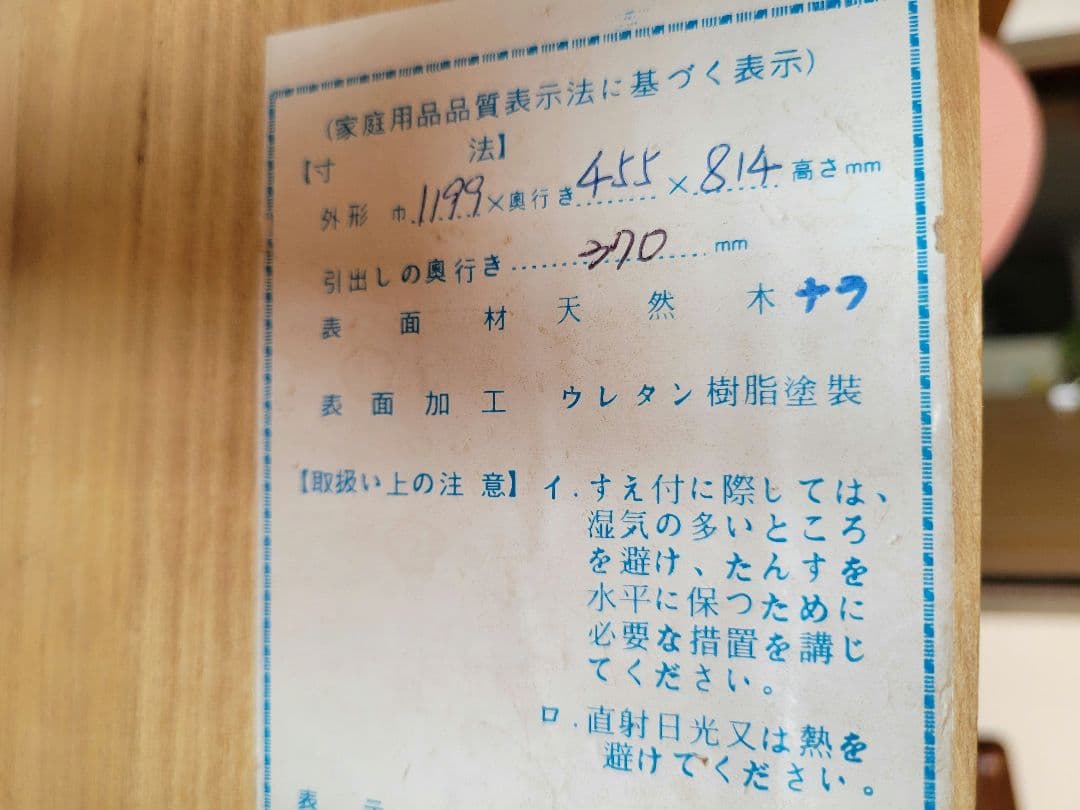 (家庭用品品質表示法に基づく表示)
【寸 法】
外形 巾 1199 ×奥行き 455 × 814 高さmm
引出しの奥行き 370 mm
表面材 天然木 ナラ
表面加工 ウレタン樹脂塗装
【取扱い上の注意】 イ.すえ付に際しては、
湿気の多いところ
を避け、たんすを
水平に保つために
必要な措置を講じ
てください。
ロ.直射日光又は熱を
避けてください。
表 示